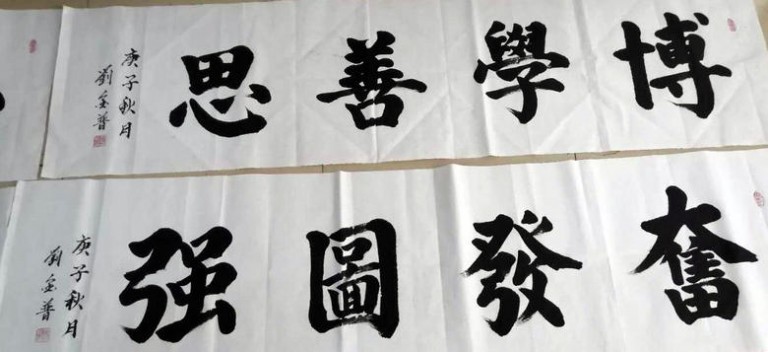 博學善思
庚子秋月
劉金普
奮發圖强
庚子秋月
劉金普